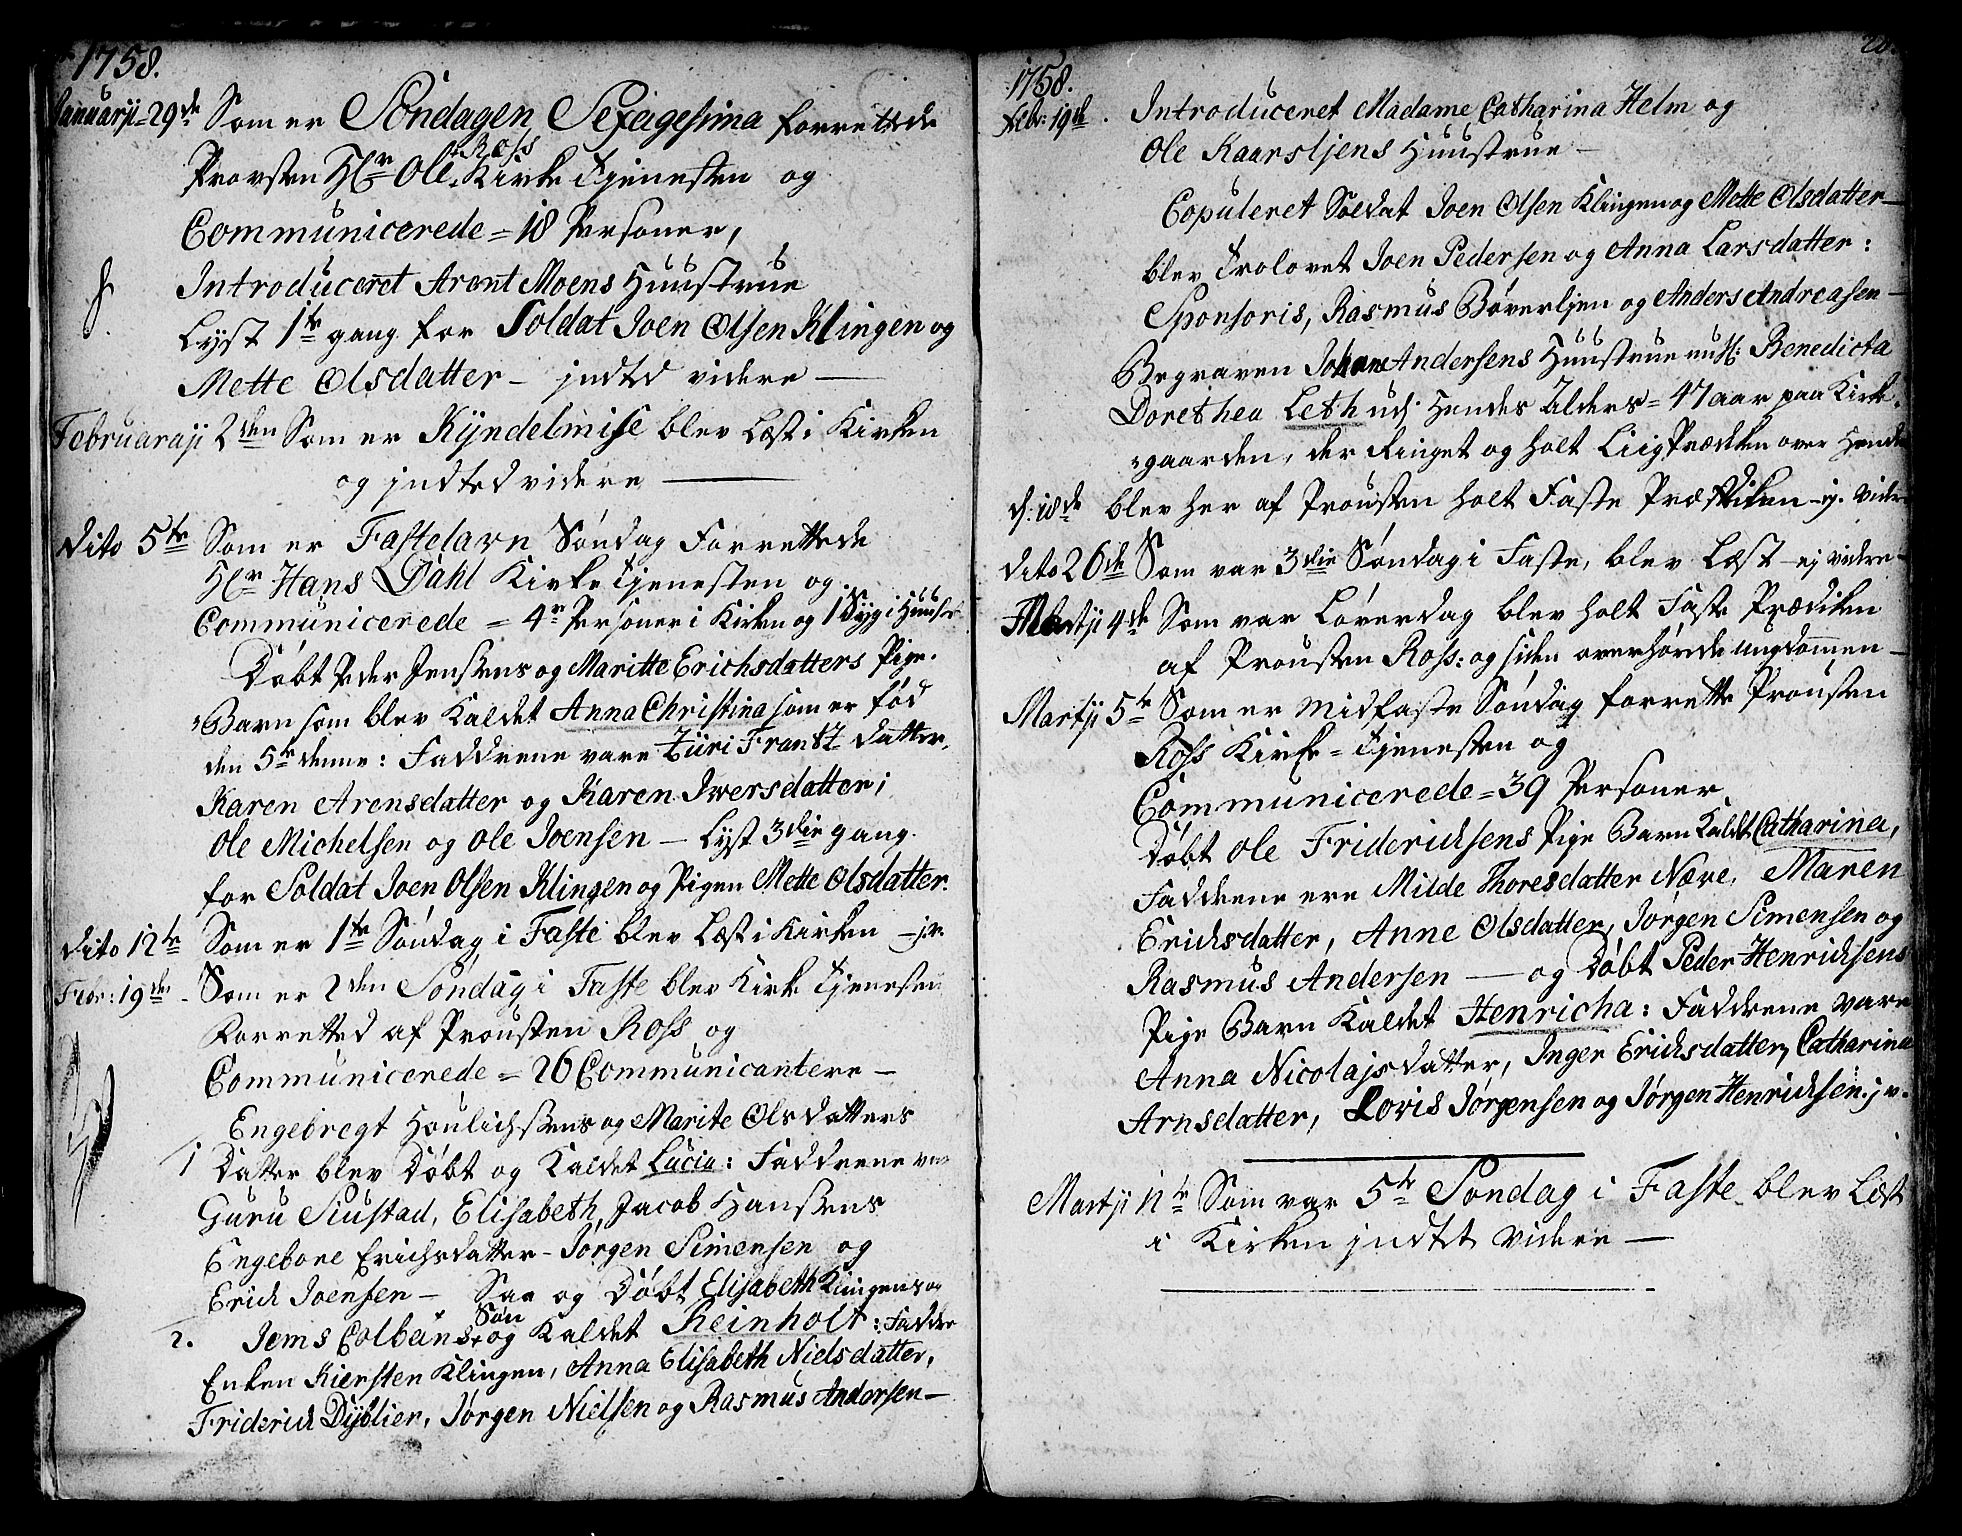 1758.
Januarji = 29de Som er Söndagen Sexagesima forrettede
Provsten Hr Ole Ross Kirke Tjenesten og
Communicerede = 18 Personer,
Introduceret Arent Moens Huustrue
Lyst 1te gang for Soldat Joen Olsen Klingen og
Mette Olsdatter – jndted videre —
Februaraji 2den Som er Kyndelmisse blev Læst i Kirken
og jndted videre —
Dito 5te Som er Fastelavn Søndag Forrettede
Hr Hans Dahl Kirke Tjenesten og
Communicerede = 4re Personer i Kirken og 1 Syg i Huuset
Døbt Peder Jenssens og Maritte Erichsdatters Pige-
Barn som blev Kaldet Anna Christina som er fød
den 5te denne: Faddrene vare Züri Frantz datter,
Karen Arensdatter og Karen Iwersdatter;
Ole Michelsen og Ole Joensen – Lyst 3die gang
for Soldat Joen Olsen Klingen og Pigen Mette Olsdatter.
Dito 12te Som er 1te Søndag i Faste blev Læst i Kirken – j.v.
Febr: 19de – Som er 2den Søndag i Faste blev Kirke Tjenesten
Forretted af Prousten Ross og
Communicerede = 26 Communicantere –
Engebregt Houlichssens og Marite Olsdatters
1 Datter blev Døbt og Kaldet Lucia: Faddrene
Guru Siustad, Elisabeth, Jacob Hanssens
Engebore Erichsdatter – Jørgen Simensen og
Erich Joensen – Saa og Døbt Elisabeth Klingens og
2. Jems Colbans Søn og Kaldet Reinholt: Faddre
Enken Kiersten Klingen, Anna Elisabeth Nielsdatter,
Friderich Dyblier, Jørgen Nielsen og Rasmus Andersen –
1758.
Febr: 19de. Introduceret Madame Catharina Helm og
Ole Kaarsljens Huustrue –
Copuleret Soldat Joen Olsen Klingen og Mette Olsdatter –
blev Trolovet Joen Pedersen og Anna Larsdatter:
Sponsoris, Rasmus Bøverljen og Anders Andreasen –
Begraven Johan Andersens Huustrue Benedicta
Dorethea Leth Hendes Alders = 47 aar paa Kirke-
gaarden, der Ringet og holt Liig Prædiken over Hende
d: 18de blev her af Prousten holt Faste Prædiken – ij. vidre
Dito 26de Som var 3die Søndag i Faste, blev Læst – ij vidre –
Martji 4de Som var Løverdag blev holt Faste Prædiken
af Prousten Ross: og siden overhørde ungdommen –
Martji 5te Som er Midfaste Søndag forrette Prousten
Ross Kirke = Tjenesten og
Communicerede = 39 Personer
Døbt Ole Friderichsens Pige Barn Kaldt Catharina,
Faddrene ere Milde Thoresdatter Nære, Maren
Erichsdatter, Anne Olsdatter, Jørgen Simensen og
Rasmus Andersen — og Døbt Peder Henrichsens
Pige Barn Kaldet Henricha: Faddrene vare
Anna Nicolajsdatter, Inger Erichsdatter, Catharina
Arnsdatter, Lovis Jørgensen og Jørgen Henrichsen. j v.
Martji 11te Som var 5te Søndag i Faste blev Læst
i Kirken jndtet videre —